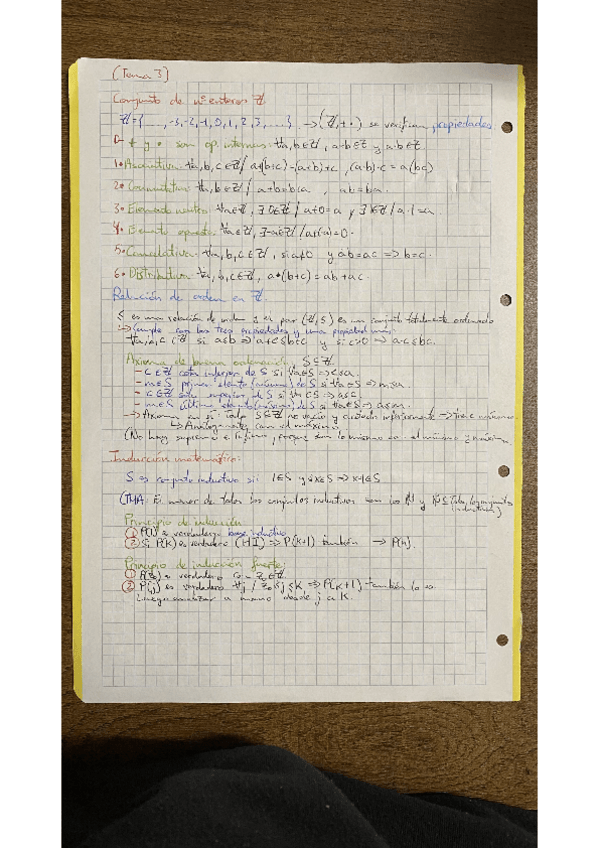 (Tema 3)
Conjunto de nº enteros ℤ
ℤ={..., -3,-2,-1,0,1,2,3,...} →(ℤ,+,·) se verifican propiedades
0- + y · son op. internas: ∀a,b∈ℤ, a+b∈ℤ y a·b∈ℤ
1· Asociativa: ∀a,b,c∈ℤ/ a+(b+c)=(a+b)+c, (a·b)·c=a(bc)
2· Conmutativa: ∀a,b∈ℤ/ a+b=b+a, ab=ba.
3· Elemento neutro: ∀a∈ℤ, ∃0∈ℤ/ a+0=a y ∃1∈ℤ/a·1=a.
4· Elemento opuesto: ∀a∈ℤ, ∃-a∈ℤ/a+(-a)=0.
5· Cancelativa: ∀a,b,c∈ℤ, si a≠0 y ab=ac ⇒ b=c.
6· Distributiva: ∀a,b,c∈ℤ, a·(b+c)=ab+ac.
Relación de orden en ℤ.
≤ es una relación de orden y el par (ℤ,≤) es un conjunto totalmente ordenado
→Cumple con las tres propiedades y una propiedad más:
∀a,b,c∈ℤ si a≤b ⇒ a+c≤b+c y si c>0 ⇒ a·c≤bc.
Axioma de buena ordenación, S⊆ℤ.
- c∈ℤ cota inferior de S si ∀a∈S ⇒ c≤a.
- m∈S primer elemento (mínimo) de S si ∀a∈S ⇒ m≤a
- c∈ℤ cota superior de S si ∀a∈S ⇒ a≤c.
- m∈S último elemento (máximo) de S si ∀a∈S ⇒ a≤m.
→ Axioma en sí: Todo S⊆ℤ no vacío y acotado inferiormente → tiene mínimo
↳ Análogamente con el máximo.
(No hay supremo e ínfimo, porque son lo mismo que el mínimo y máximo
Inducción matemática:
S es conjunto inductivo si: 1∈S y si x∈S ⇒ x+1∈S
(TMA: El menor de todos los conjuntos inductivos son los ℕ y ℕ⊆ todos los conjuntos inductivos)
Principio de inducción
① P(1) es verdadero → base inductiva
② Si P(k) es verdadero (HI) ⇒ P(k+1) también → P(n).
Principio de inducción fuerte:
① P(z₀) es verdadero z₀∈ℤ.
② P(j) es verdadero ∀j / z₀≤j≤k ⇒ P(k+1) también lo es
a mano desde j a k.